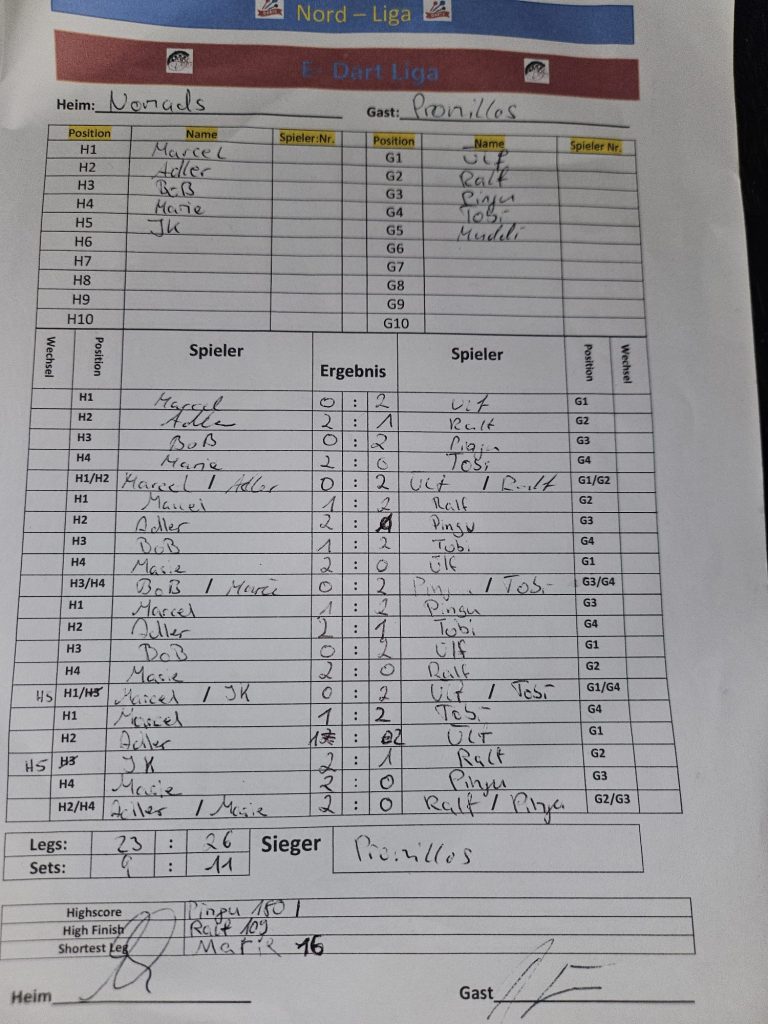 Nord – Liga
E- Dart Liga
Heim: Nomads Gast: Promillos
Position Name Spieler:Nr. Position Name Spieler Nr.
H1 Marcel G1 Ulf
H2 Adler G2 Ralf
H3 BoB G3 Pingu
H4 Marie G4 Tobi
H5 JK G5 Muddi
H6 G6
H7 G7
H8 G8
H9 G9
H10 G10
Wechsel Position Spieler Ergebnis Spieler Position Wechsel
H1 Marcel 0 : 2 Ulf G1
H2 Adler 2 : 1 Ralf G2
H3 BoB 0 : 2 Pingu G3
H4 Marie 2 : 0 Tobi G4
H1/H2 Marcel / Adler 0 : 2 Ulf / Ralf G1/G2
H1 Marcel 1 : 2 Ralf G2
H2 Adler 2 : Pingu G3
H3 BoB 1 : 2 Tobi G4
H4 Marie 2 : 0 Ulf G1
H3/H4 BoB / Marie 0 : 2 / Tobi G3/G4
H1 Marcel 1 : 2 Pingu G3
H2 Adler 2 : 1 Tobi G4
H3 BoB 0 : 2 Ulf G1
H4 Marie 2 : 0 Ralf G2
H5 H1/H3 Marcel / JK 0 : 2 Ulf / Tobi G1/G4
H1 Marcel 1 : 2 Tobi G4
H2 Adler 1 : 2 Ulf G1
H5 H3 JK 2 : 1 Ralf G2
H4 Marie 2 : 0 Pingu G3
H2/H4 Adler / Marie 2 : 0 Ralf / Pingu G2/G3
Legs: 23 : 26 Sieger Promillos
Sets: 9 : 11
Highscore Pingu 180 1
High Finish Ralf 109
Shortest Leg Marie 16
Heim Gast